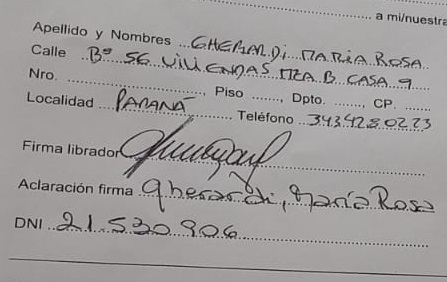 a mi/nuestra
Apellido y Nombres GHERARDI, MARIA ROSA
Calle Bº 56 VIVIENDAS MZA B CASA 9
Nro. ............, Piso ......., Dpto. ......., CP. .......
Localidad PARANÁ Teléfono 3434280223
Firma librador
Aclaración firma Gherardi, María Rosa
DNI 21.530.906